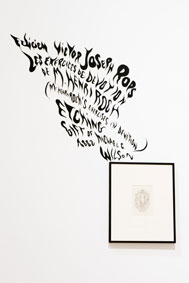 FÉLICIEN VICTOR JOSEPH ROPS
LES EXERCICES DE DEVOTION
DE M. HENRI ROCH
(MR. HENRI ROCH'S EXERCISES IN DEVOTION)
ETCHING
GIFT OF MICHAEL G
WILSON